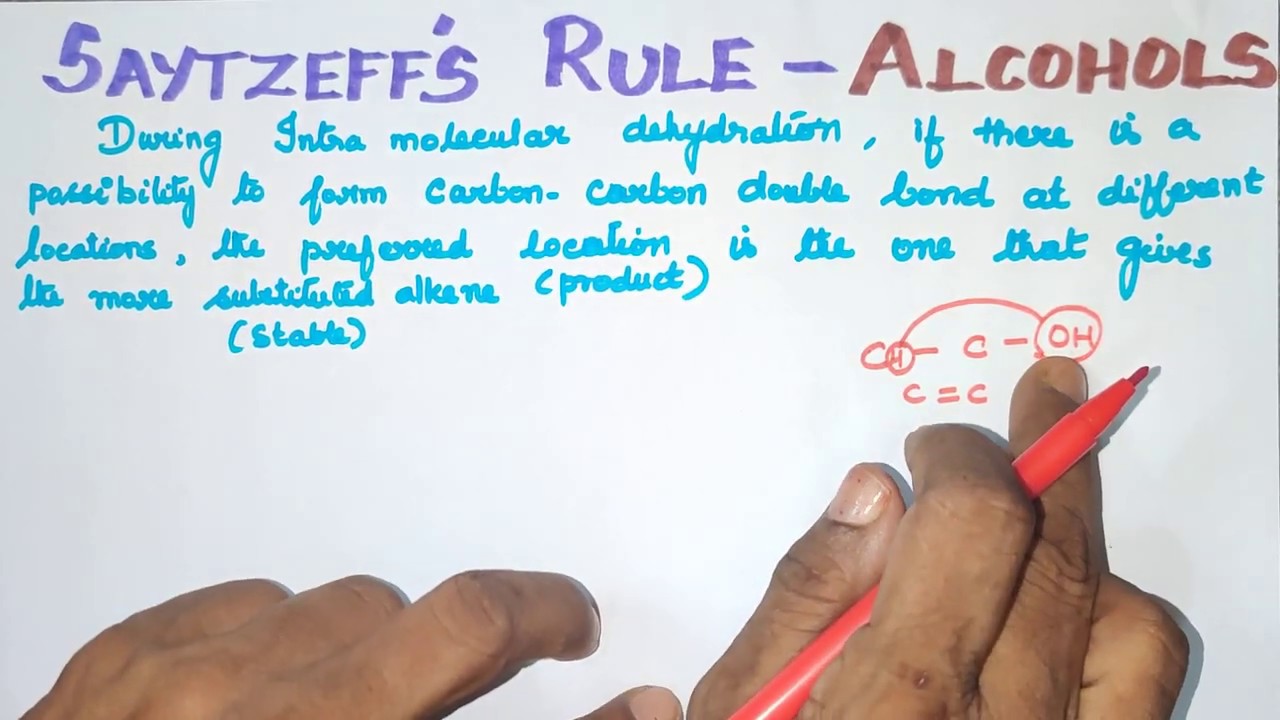 SAYTZEFF'S RULE - ALCOHOLS
During Intra molecular dehydration, if there is a
possibility to form carbon-carbon double bond at different
locations, the preferred location is the one that gives
the more substituted alkene (product)
(Stable)
CH - C - OH
C = C